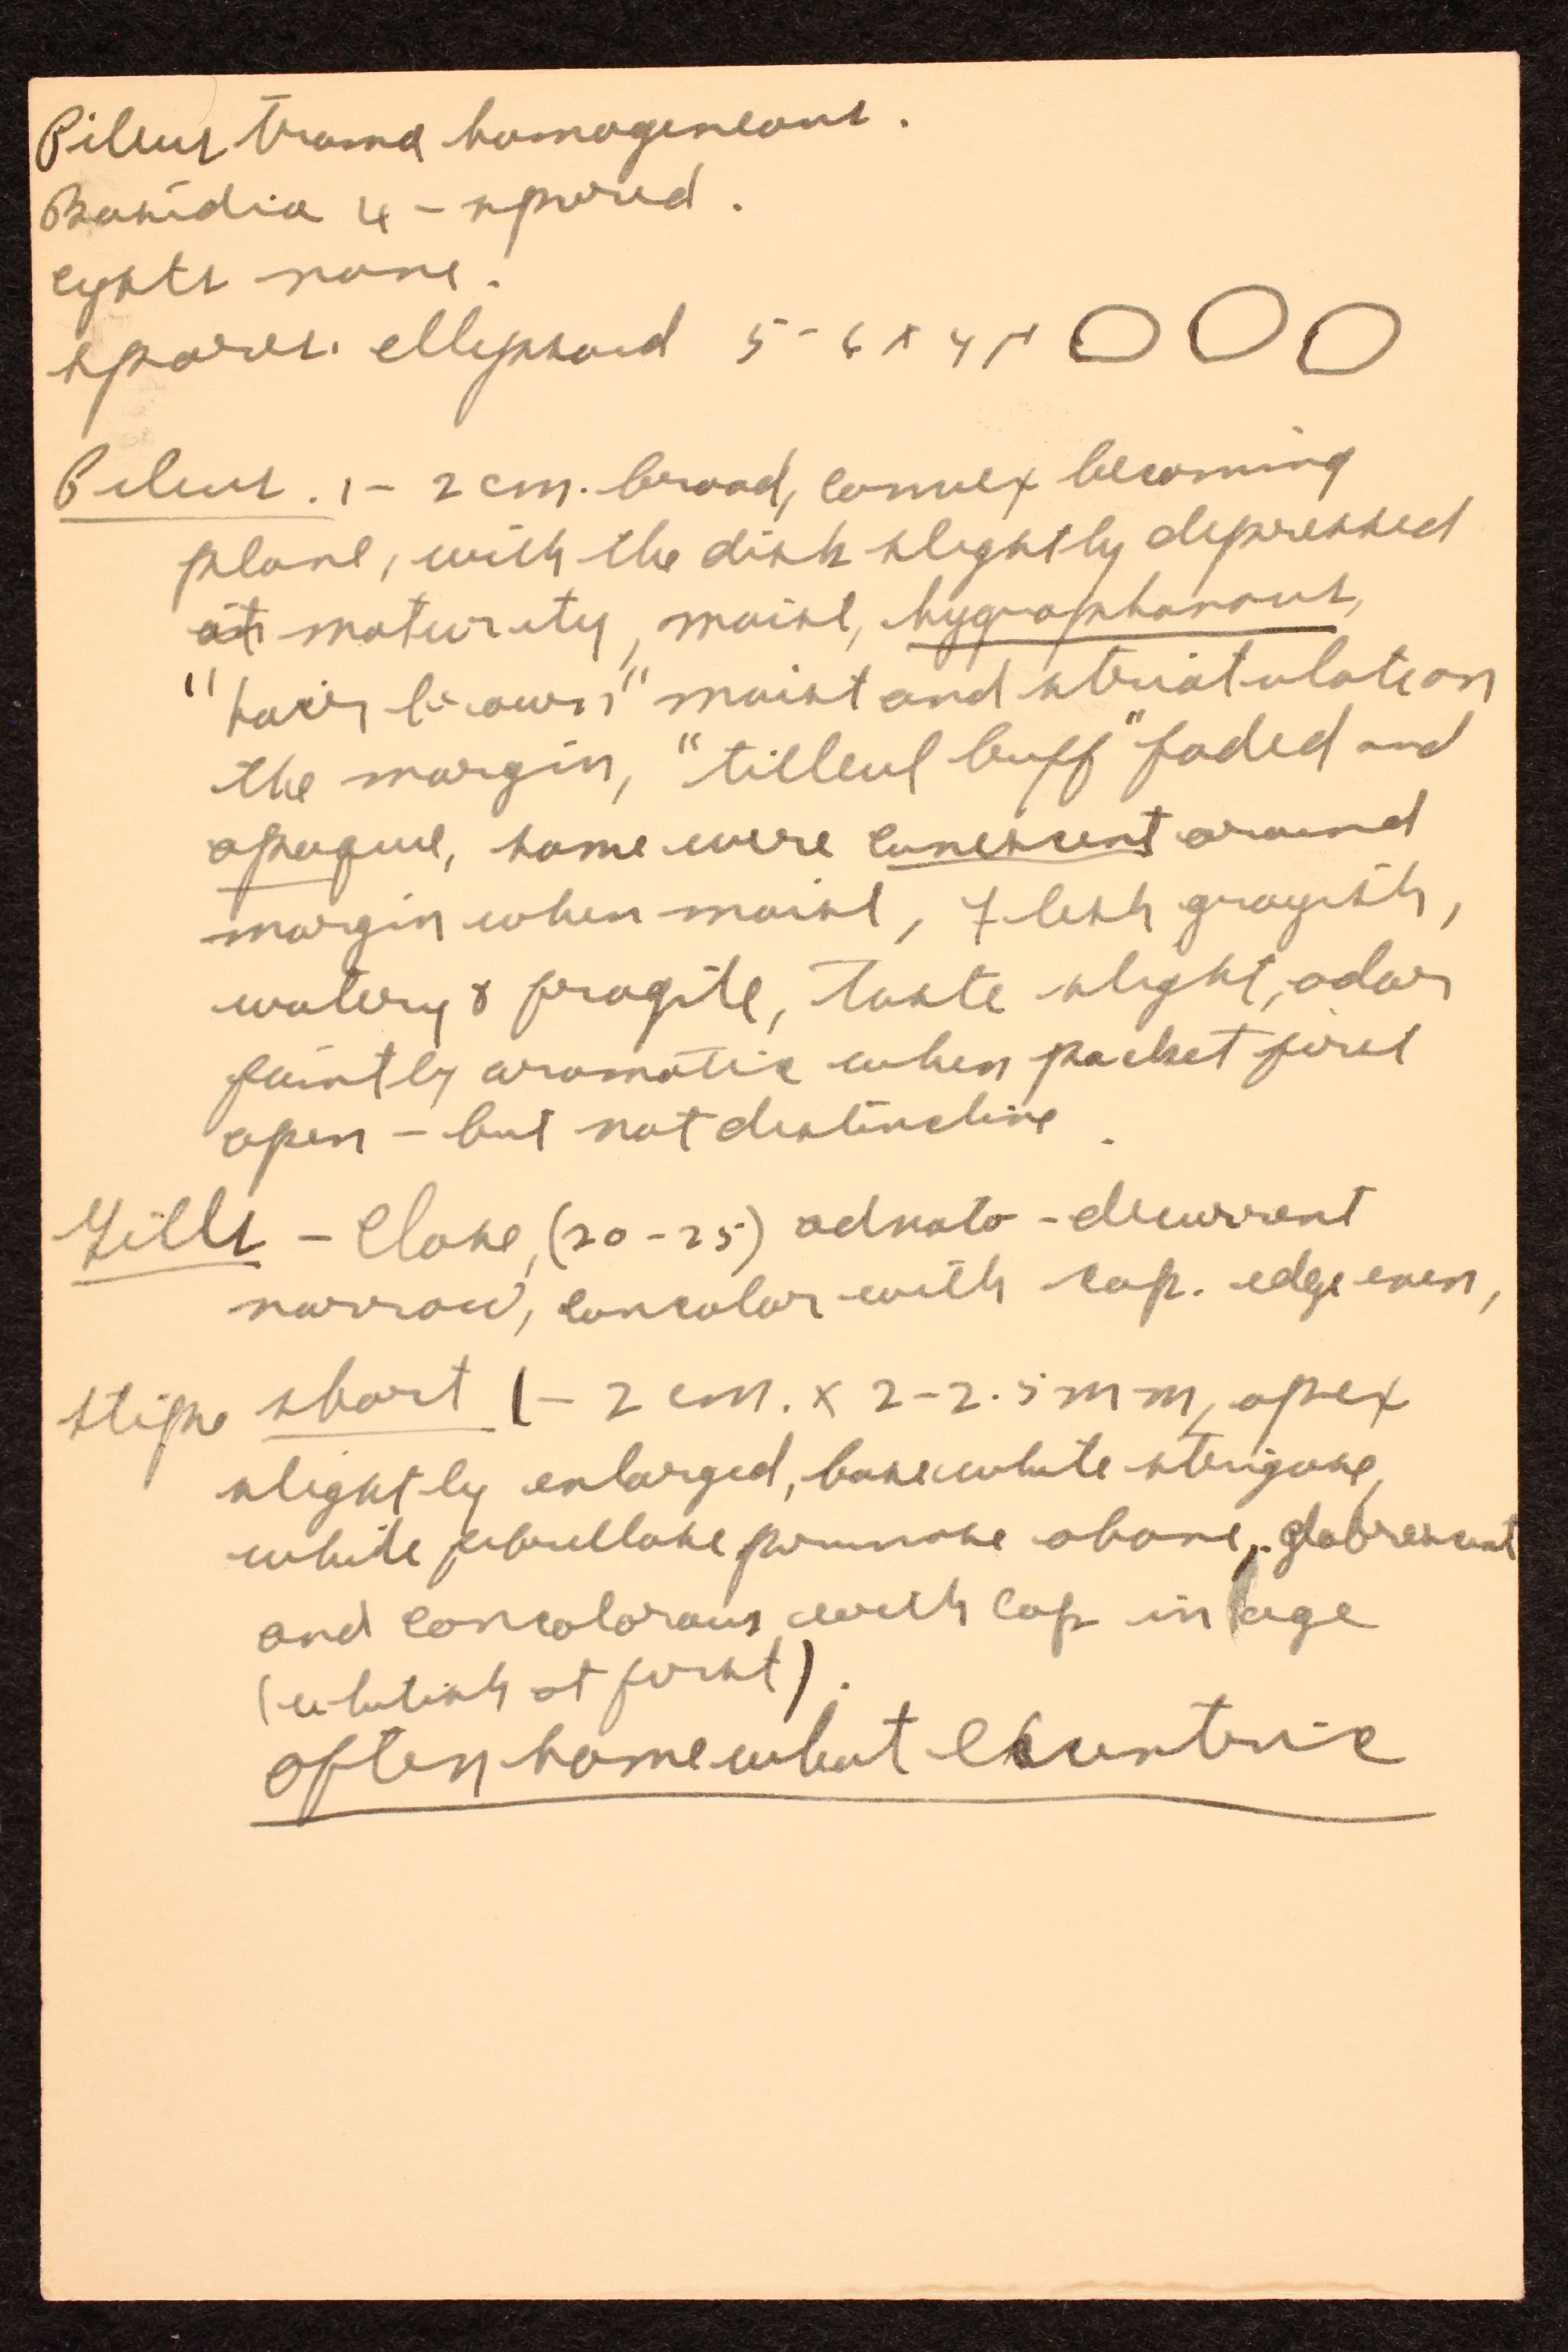 Pileus trama homogeneous.
Basidia 4-spored.
Cysts none.
spores. ellipsoid 5-6 x 4 µ
Pileus. 1-2 cm. broad, convex becoming
plane, with the disk slightly depressed
at maturity, moist, hygrophanous,
"hair brown" moist and striatulate on
the margin, "tilleul buff" faded and
opaque, some were canescent around
margin when moist, flesh grayish,
watery & fragile, taste slight, odor
faintly aromatic when packet first
open - but not distinctive.
Gills - Close, (20-25) adnato-decurrent
narrow, concolor with cap. edge even,
Stipe short 1-2 cm. x 2-2.5 mm, apex
slightly enlarged, base white strigose,
white fibrillose pruinose above, glabrescent
and concolorous with cap in age
(whitish at first).
often somewhat eccentric